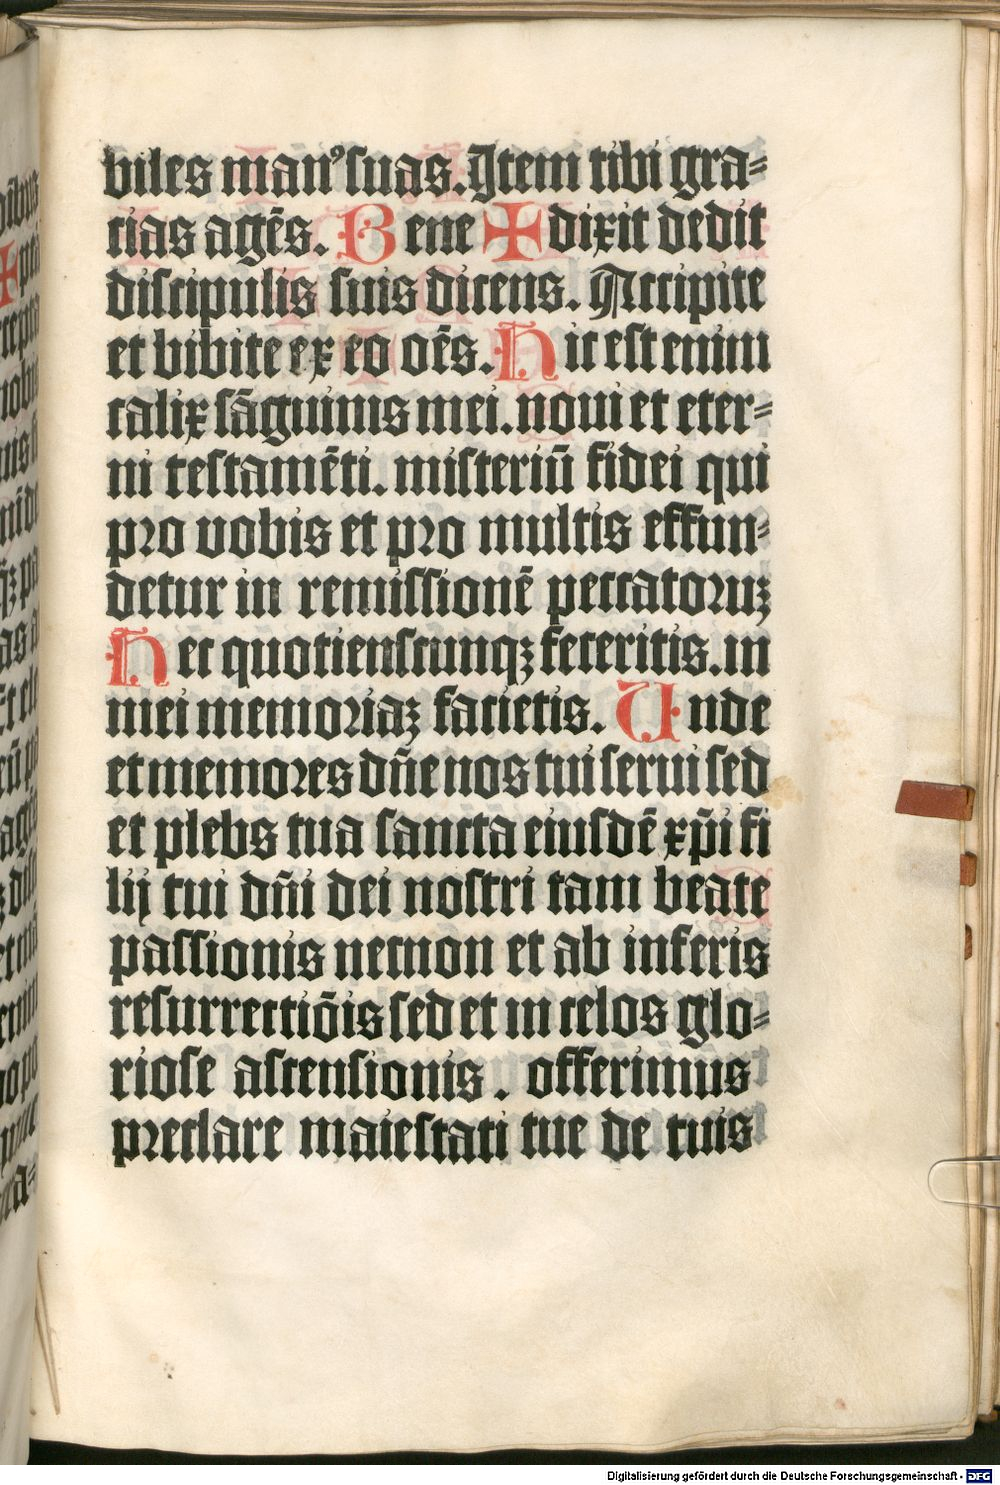 biles man⁹ suas. Item tibi gra⸗
cias agēs. Bene ✠ dixit dedit
discipulis suis dicens. Accipite
et bibite ex eo oēs. Hic est enim
calix sāguinis mei. noui et eter⸗
ni testamēti. misteriū fidei qui
pro vobis et pro multis effun⸗
detur in remissionē peccatoruꝫ
Hec quotienscunqꝫ feceritis. in
mei memoriaꝫ facietis. Unde
et memores dn̄e nos tui serui sed
et plebs tua sancta eiusdē xp̄i fi
lij tui dn̄i dei nostri tam beate
passionis necnon et ab inferis
resurrectiōis sed et in celos glo⸗
riose ascensionis. offerimus
preclare maiestati tue de tuis
Digitalisierung gefördert durch die Deutsche Forschungsgemeinschaft - DFG